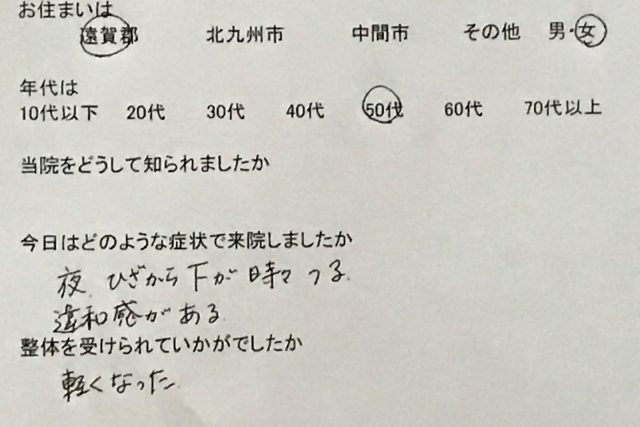 お住まいは
遠賀郡 北九州市 中間市 その他 男・女
年代は
10代以下 20代 30代 40代 50代 60代 70代以上
当院をどうして知られましたか
今日はどのような症状で来院しましたか
夜、ひざから下が時々つる。
違和感がある。
整体を受けられていかがでしたか
軽くなった。